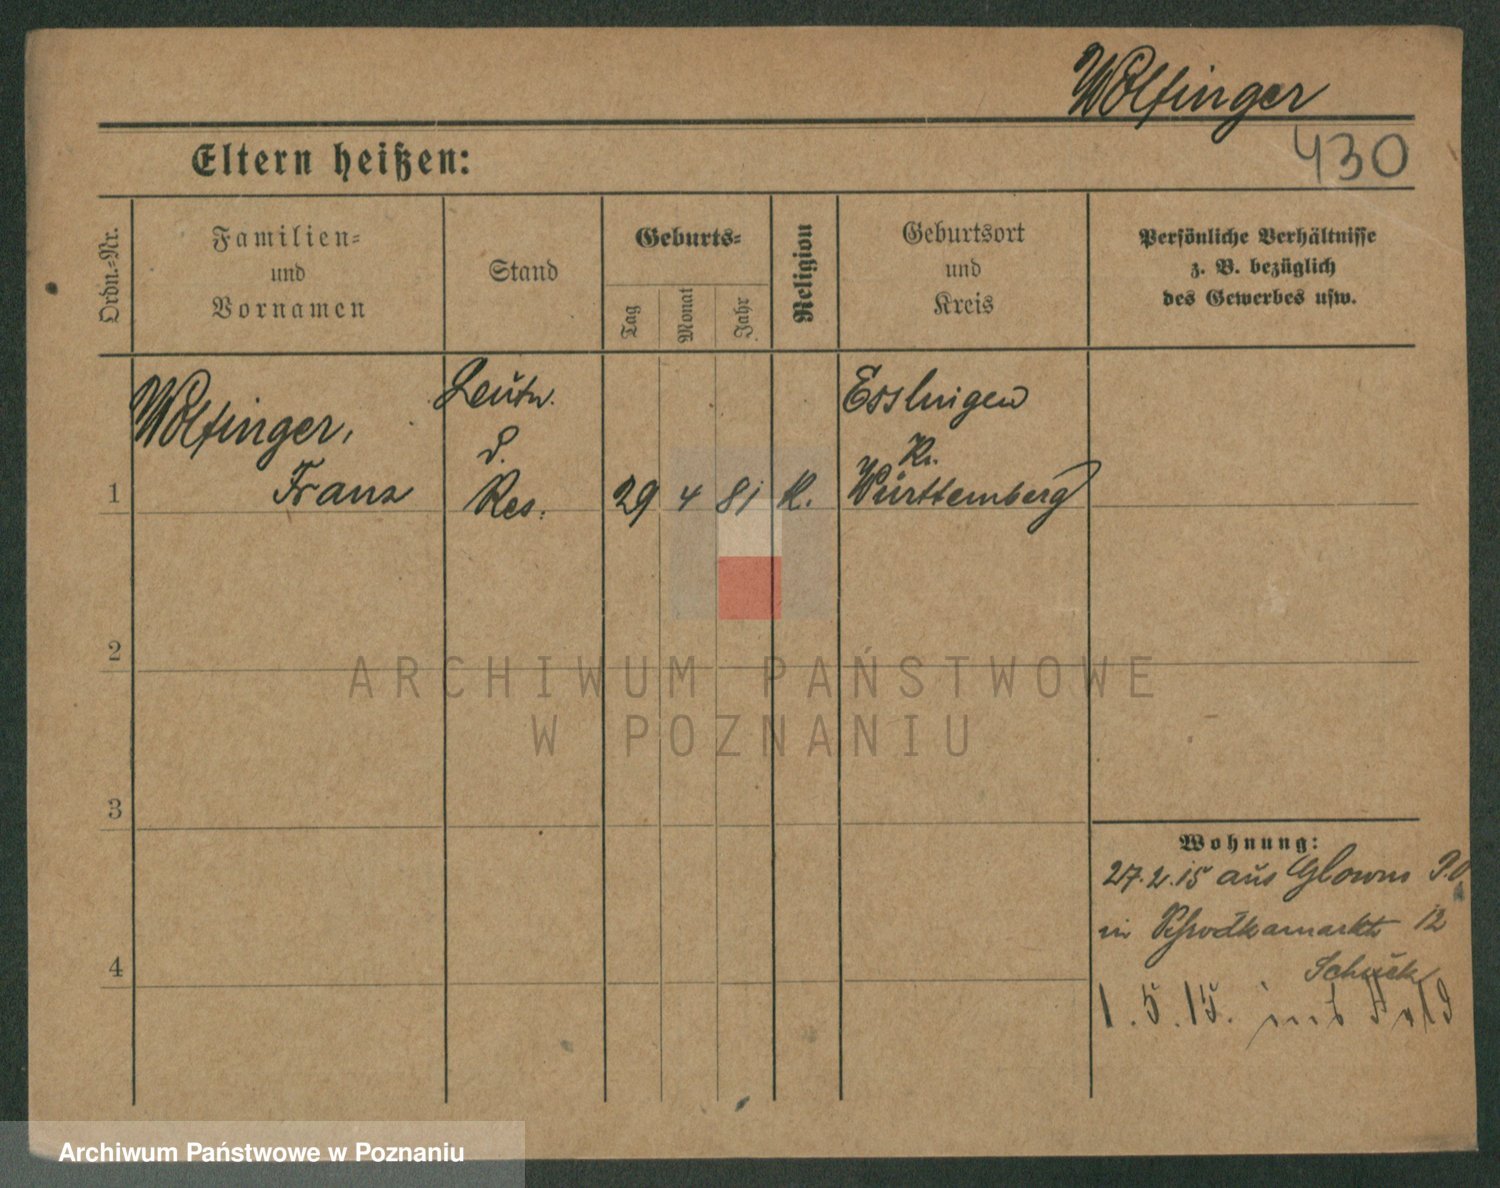 Wolfinger
430
Eltern heißen:
Ordn.-Nr.
Familien-
und
Vornamen
Stand
Geburts-
Tag
Monat
Jahr
Religion
Geburtsort
und
Kreis
Persönliche Verhältnisse
z. B. bezüglich
des Gewerbes usw.
1
Wolfinger,
Franz
Leutn.
d.
Res.
29 4 81 K.
Esslingen
Kr.
Württemberg
2
3
4
Wohnung:
27.2.15 aus Glowno
in Schrodkamarkt 12
Schück
1.5.15. ins Feld
ARCHIWUM PAŃSTWOWE
W POZNANIU
Archiwum Państwowe w Poznaniu